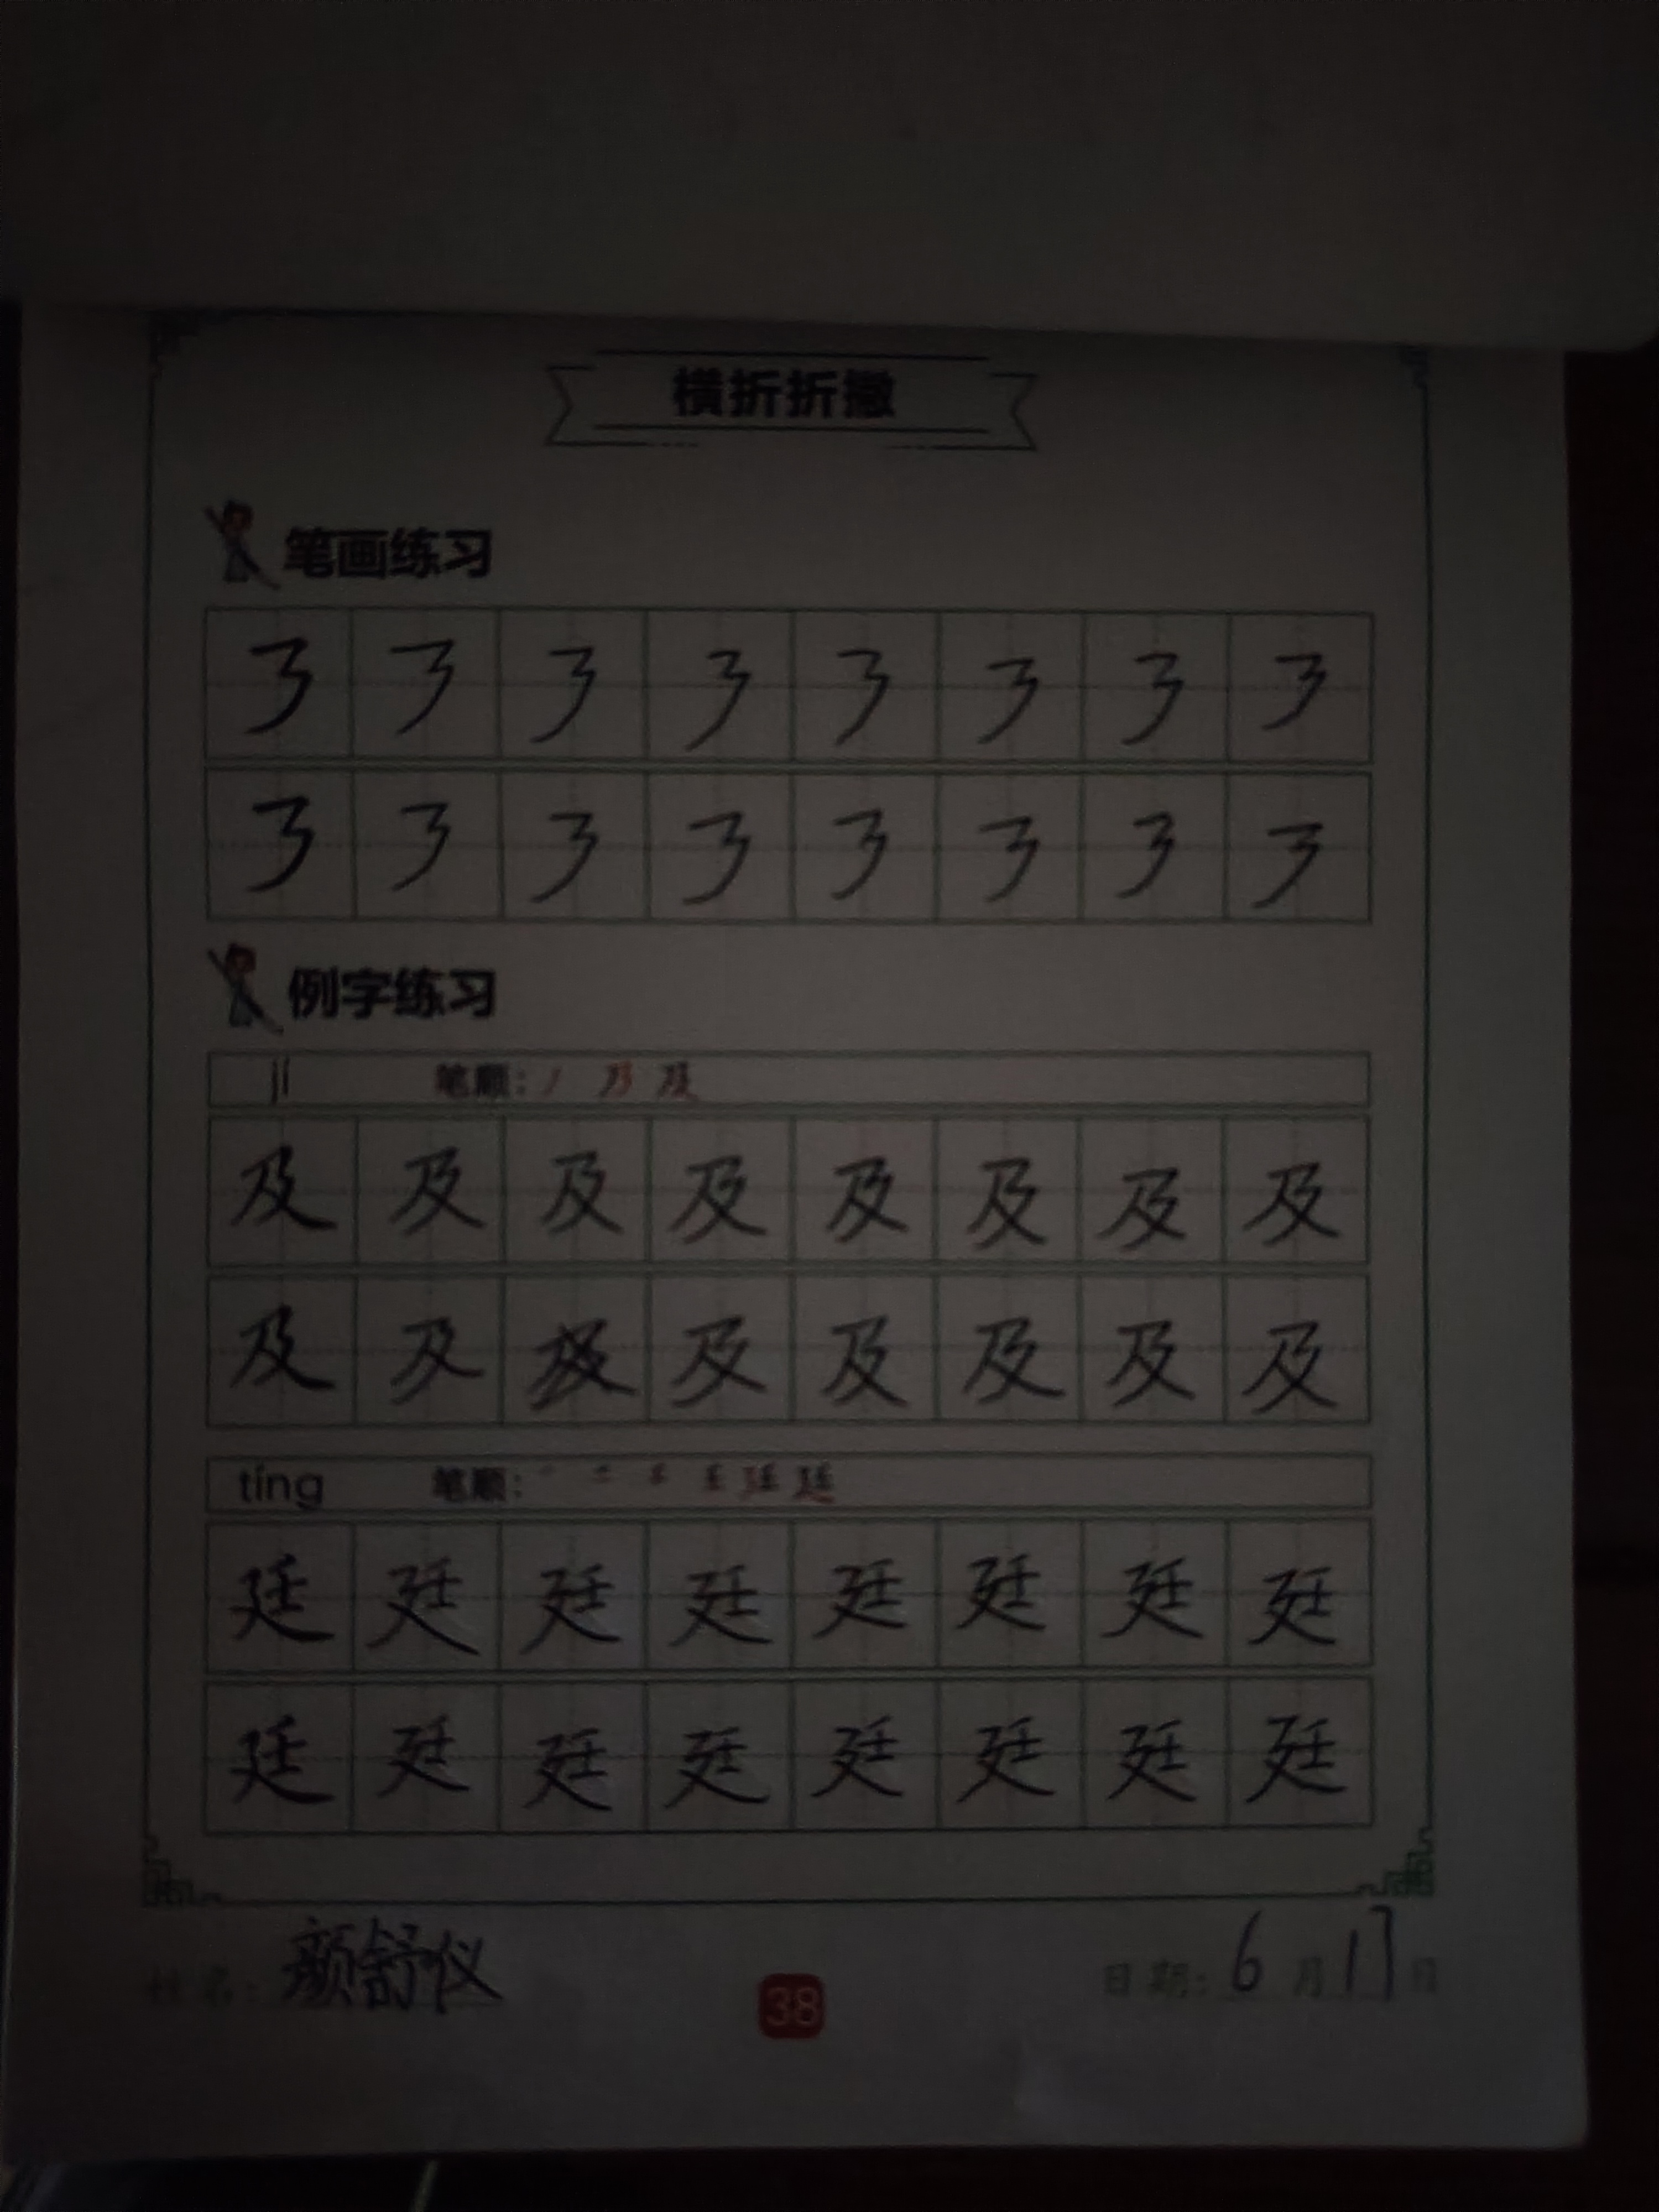 横折折撇
笔画练习
㇋ ㇋ ㇋ ㇋ ㇋ ㇋ ㇋ ㇋
㇋ ㇋ ㇋ ㇋ ㇋ ㇋ ㇋ ㇋
例字练习
jí 笔顺: 丿 乃 及
及 及 及 及 及 及 及 及
及 及 及 及 及 及 及
tíng 笔顺: 廷 廷
廷 廷 廷 廷 廷 廷 廷 廷
廷 廷 廷 廷 廷 廷 廷 廷
姓名: 颜舒仪 38 日期: 6月17日